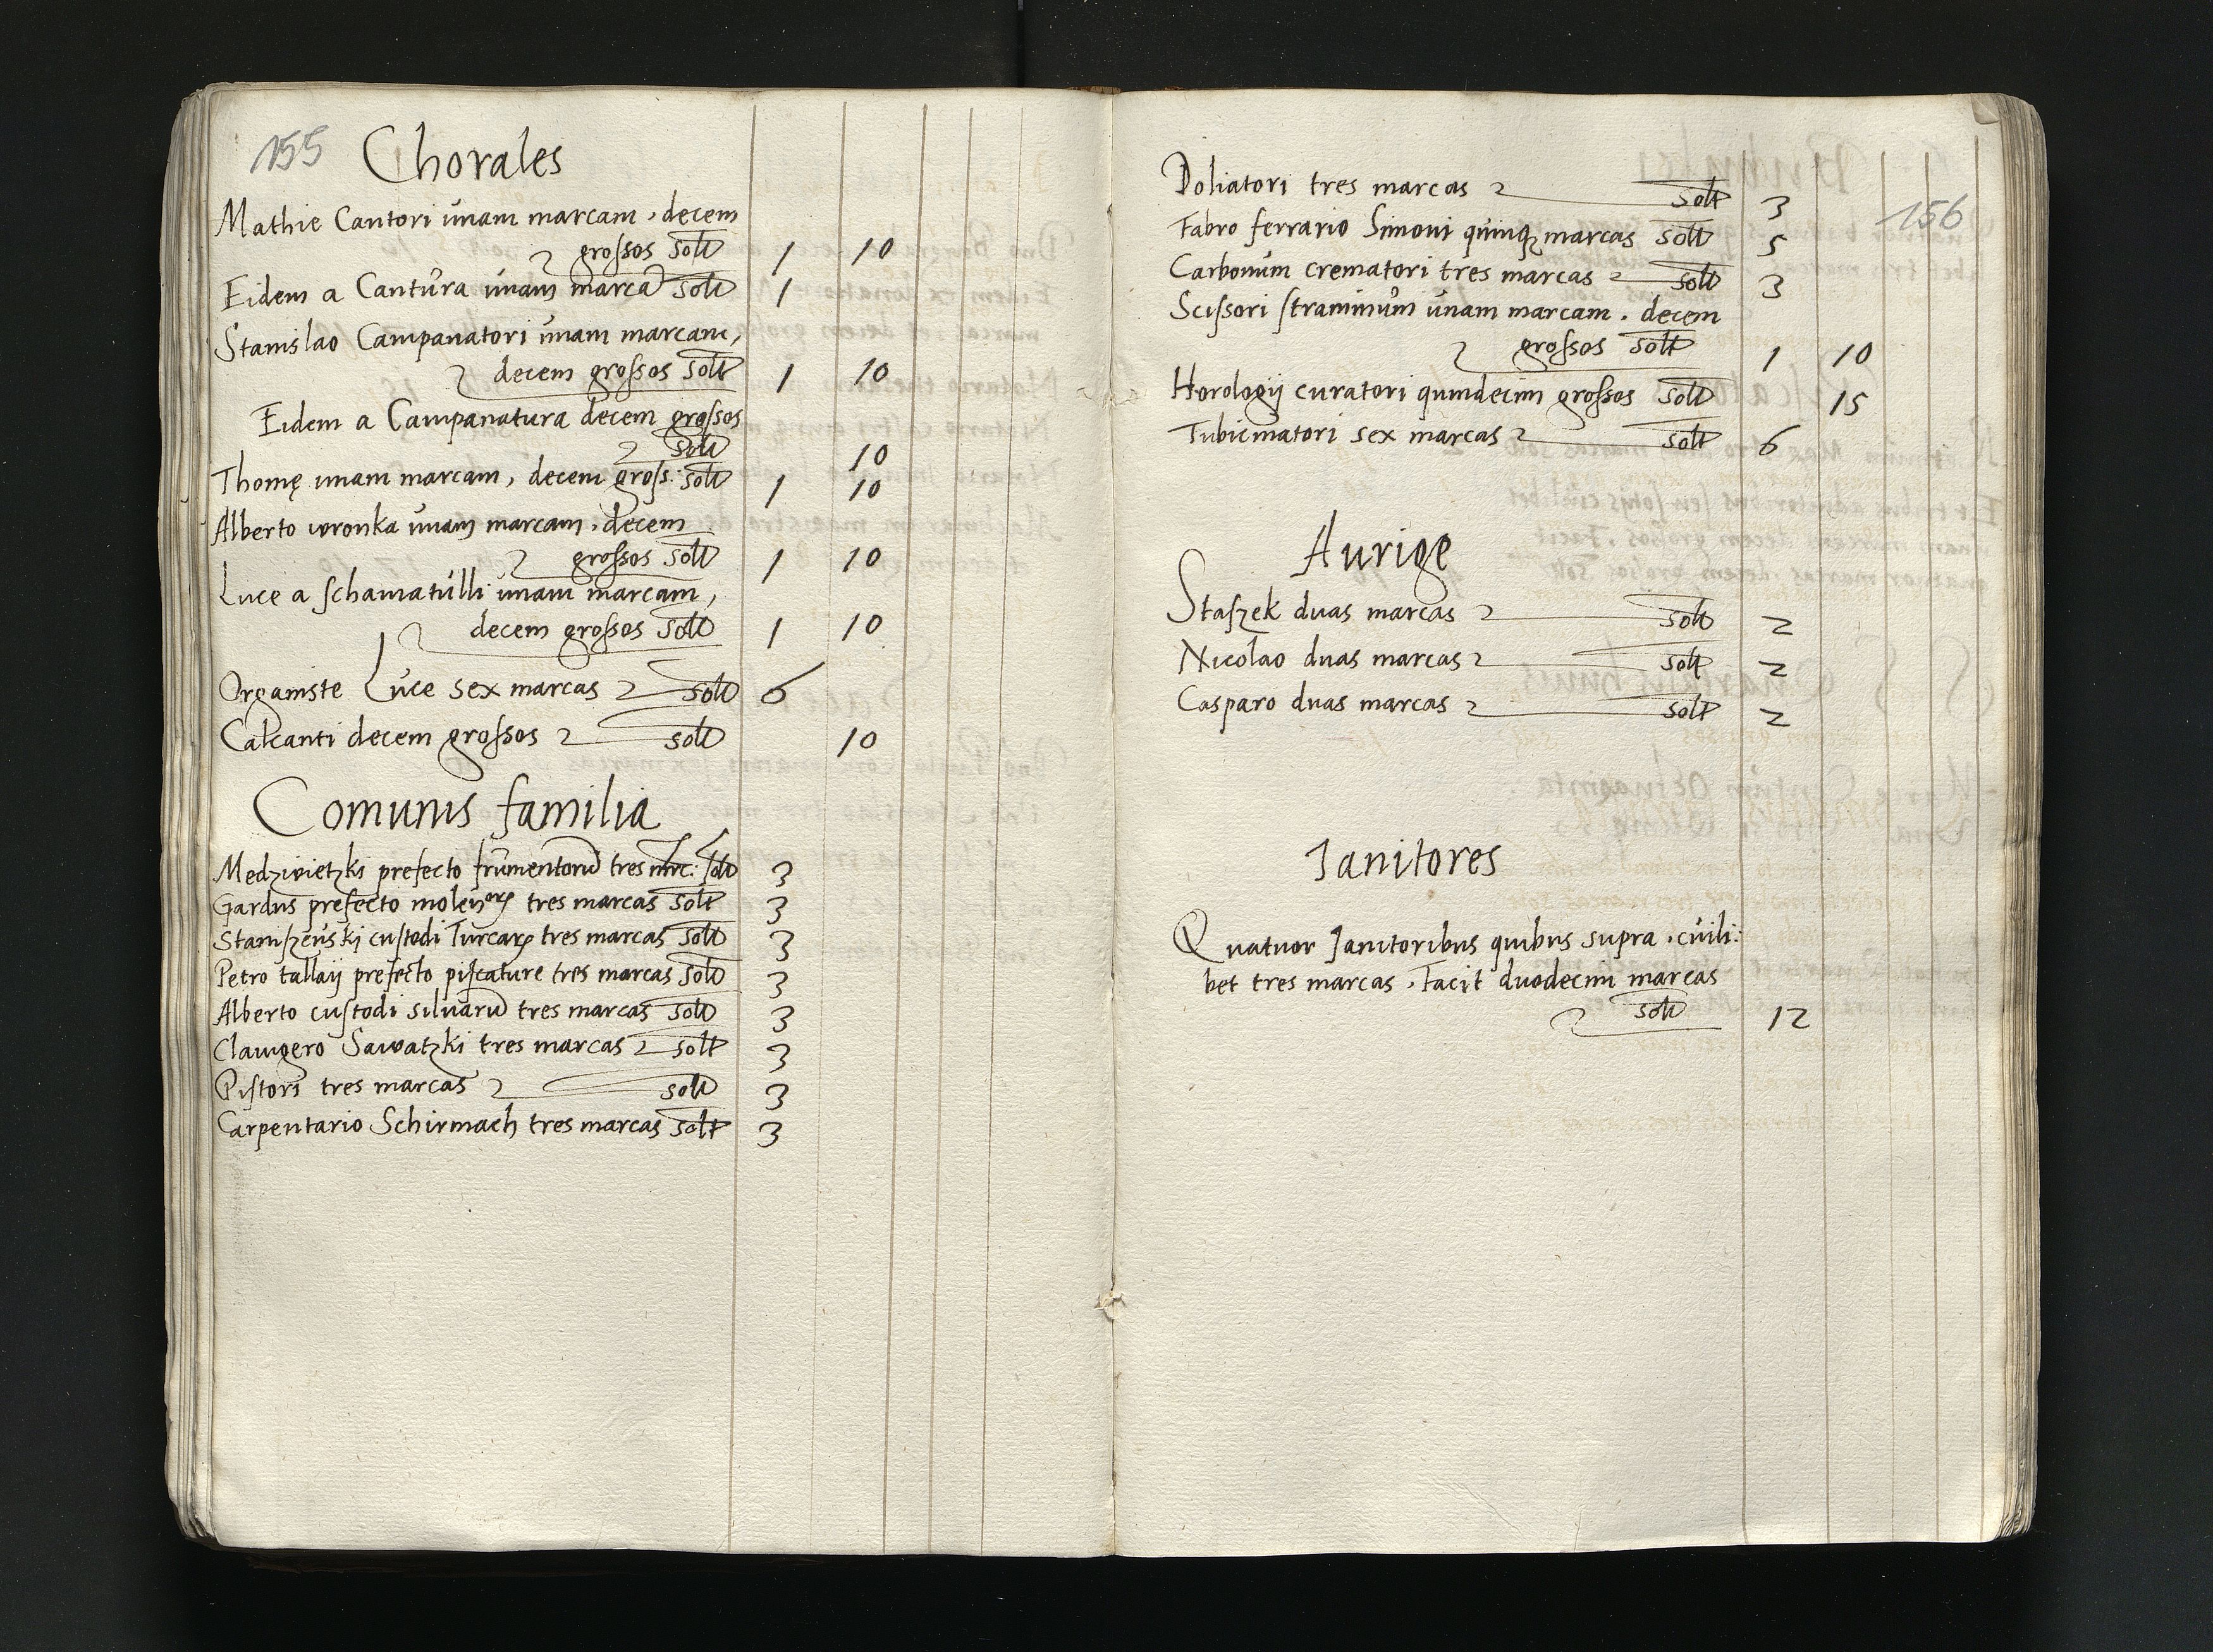 155
Chorales
Mathie Cantori unam marcam, decem
grossos solt 1 10
Eidem a Cantura unam marcã solt 1
Stanislao Campanatori unam marcam,
decem grossos solt 1 10
Eidem a Campanatura decem grossos
solt 10
Thomę unam marcam, decem gross: solt 1 10
Alberto wronka unam marcam, decem
grossos solt 1 10
Luce a schamatulli unam marcam,
decem grossos solt 1 10
Organiste Luce sex marcas solt 6
Calcanti decem grossos solt 10
Comunis familia
Medzwietzki prefecto frumentorũ tres mrc: solt 3
Gardus prefecto tres marcas solt 3
Staniszeuski custodi Turcarꝝ tres marcas solt 3
Petro tallaij prefecto piscature tres marcas solt 3
Alberto custodi siluarũ tres marcas solt 3
Clauigero Sawatzki tres marcas solt 3
Pistori tres marcas solt 3
Carpentario Schirmach tres marcas solt 3
156
Doliatori tres marcas solt 3
Fabro ferrario Simoni quinqꝫ marcas solt 5
Carbonum crematori tres marcas solt 3
Scissori straminum unam marcam. decem
grossos solt 1 10
Horologij curatori quindecim grossos solt 15
Tubicinatori sex marcas solt 6
Aurige
Staszek duas marcas solt 2
Nicolao duas marcas solt 2
Casparo duas marcas solt 2
Ianitores
Quatuor Ianitoribus quibus supra, cuili:
bet tres marcas. Facit duodecim marcas
solt 12